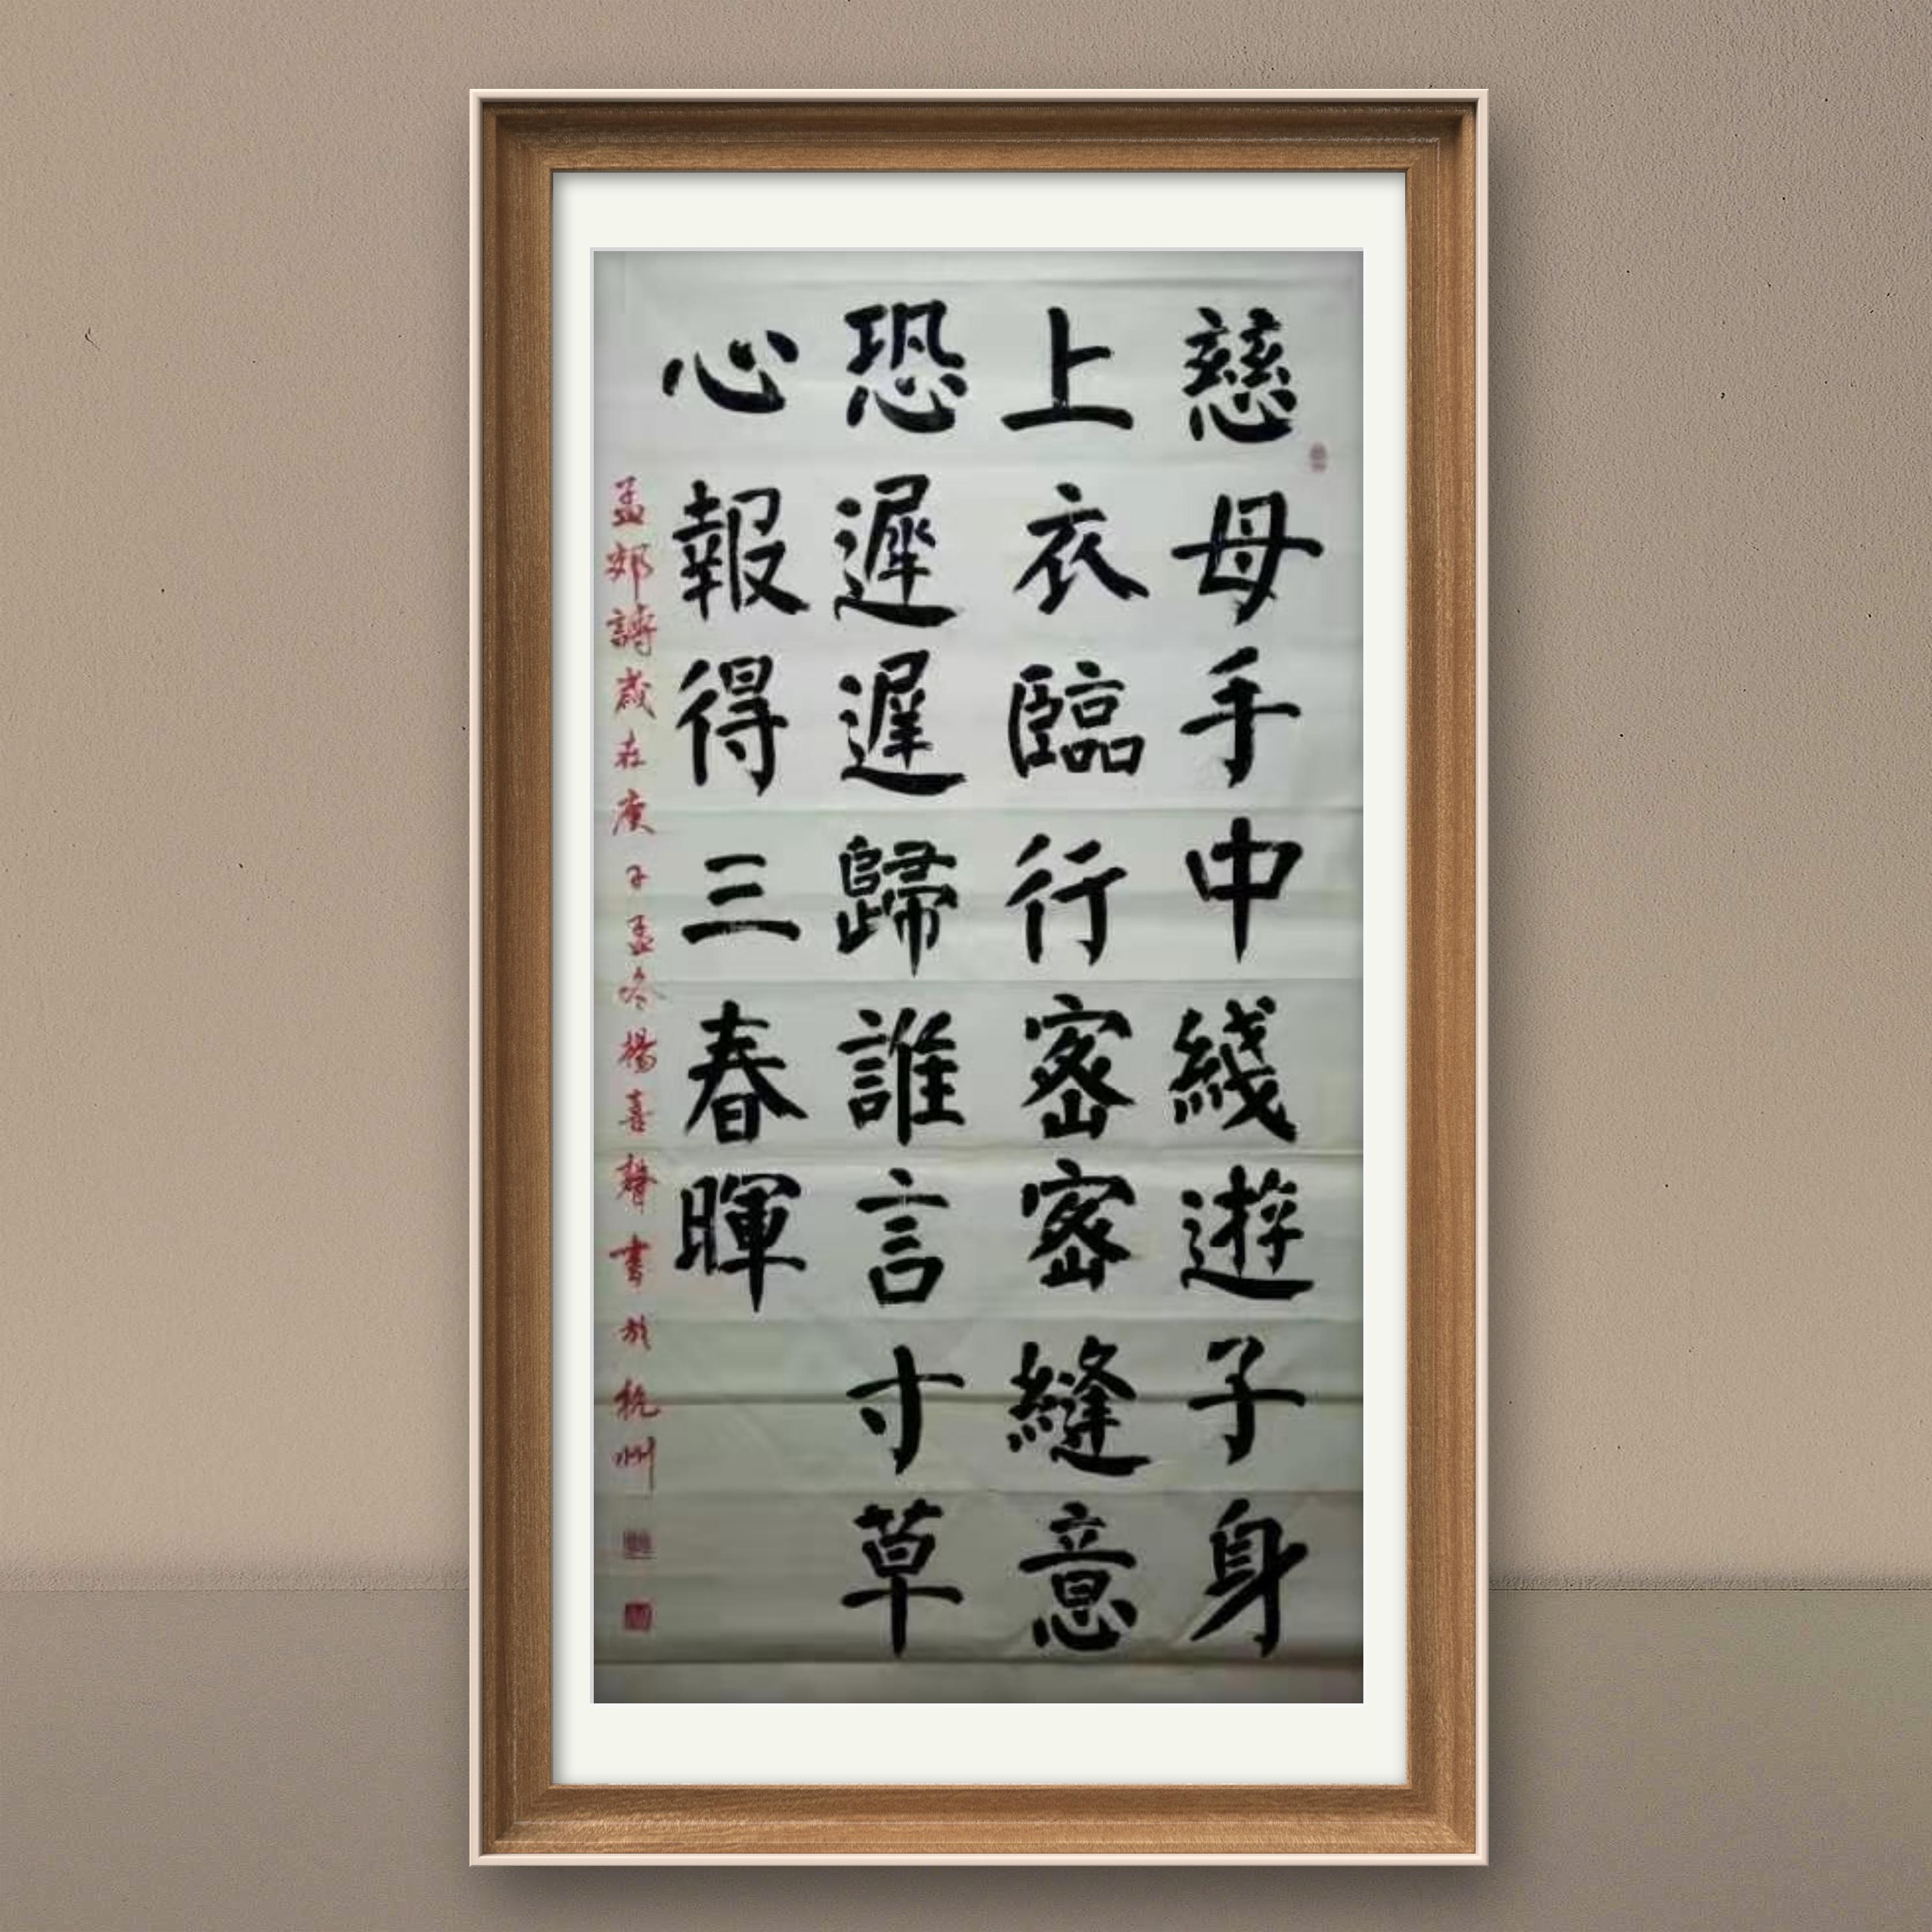 慈母手中綫遊子身
上衣臨行密密縫意
恐遲遲歸誰言寸草
心報得三春暉
孟郊詩歲在庚子孟冬楊喜聲書於杭州